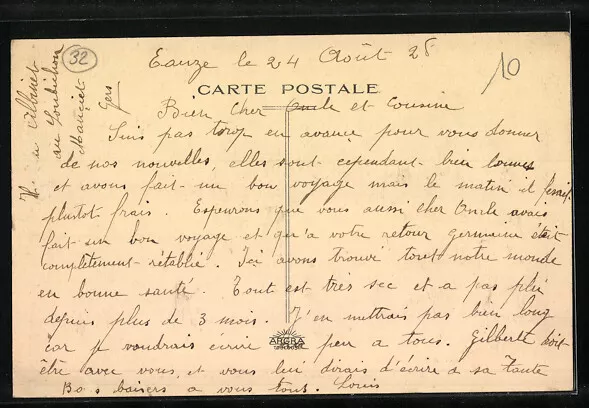 Eauze le 24 Août 28
32
10
CARTE POSTALE
Bien cher Oncle et Cousine
Suis pas torop en avance pour vous donner
de nos nouvelles, elles sont cependant bien bonnes
et avons fait un bon voyage mais le matin il fesait
plutot frais. Esperons que vous aussi cher Oncle avais
fait un bon voyage et qu'a votre retour Germaine était
complètement rétablie. Ici avons trouvé tout notre monde
en bonne santé. Tout est très sec et a pas plu
depuis plus de 3 mois. J'en mettrais pas bien long
car je voudrais ecrire un peu a tous. Gilberte doit
être avec vous, et vous lui dirais d'écrire a sa Tante
Bons baisers a vous tous. Louis
ARGRA
a Albinet
au
Mauciet
Gers